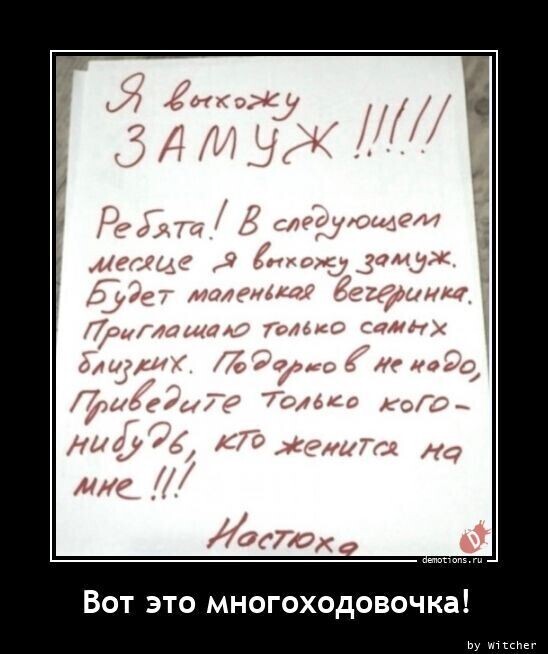 Я выхожу
ЗАМУЖ !!!!!
Ребята! В следующем
месяце я выхожу замуж.
Будет маленькая вечеринка.
Приглашаю только самых
близких. Подарков не надо,
Приведите только кого-
нибудь, кто женится на
мне !!!
Настюха
demotions.ru
Вот это многоходовочка!
by Witcher